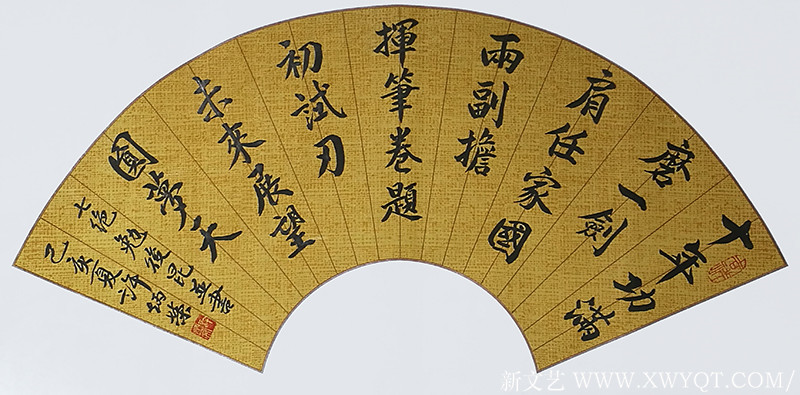 十年功滿
磨一劍
肩任家國
兩副擔
揮筆卷題
初試刃
未來展望
圓夢天
七絕勉後昆並書
己亥夏許炳榮
新文艺 WWW.XWYQT.COM/